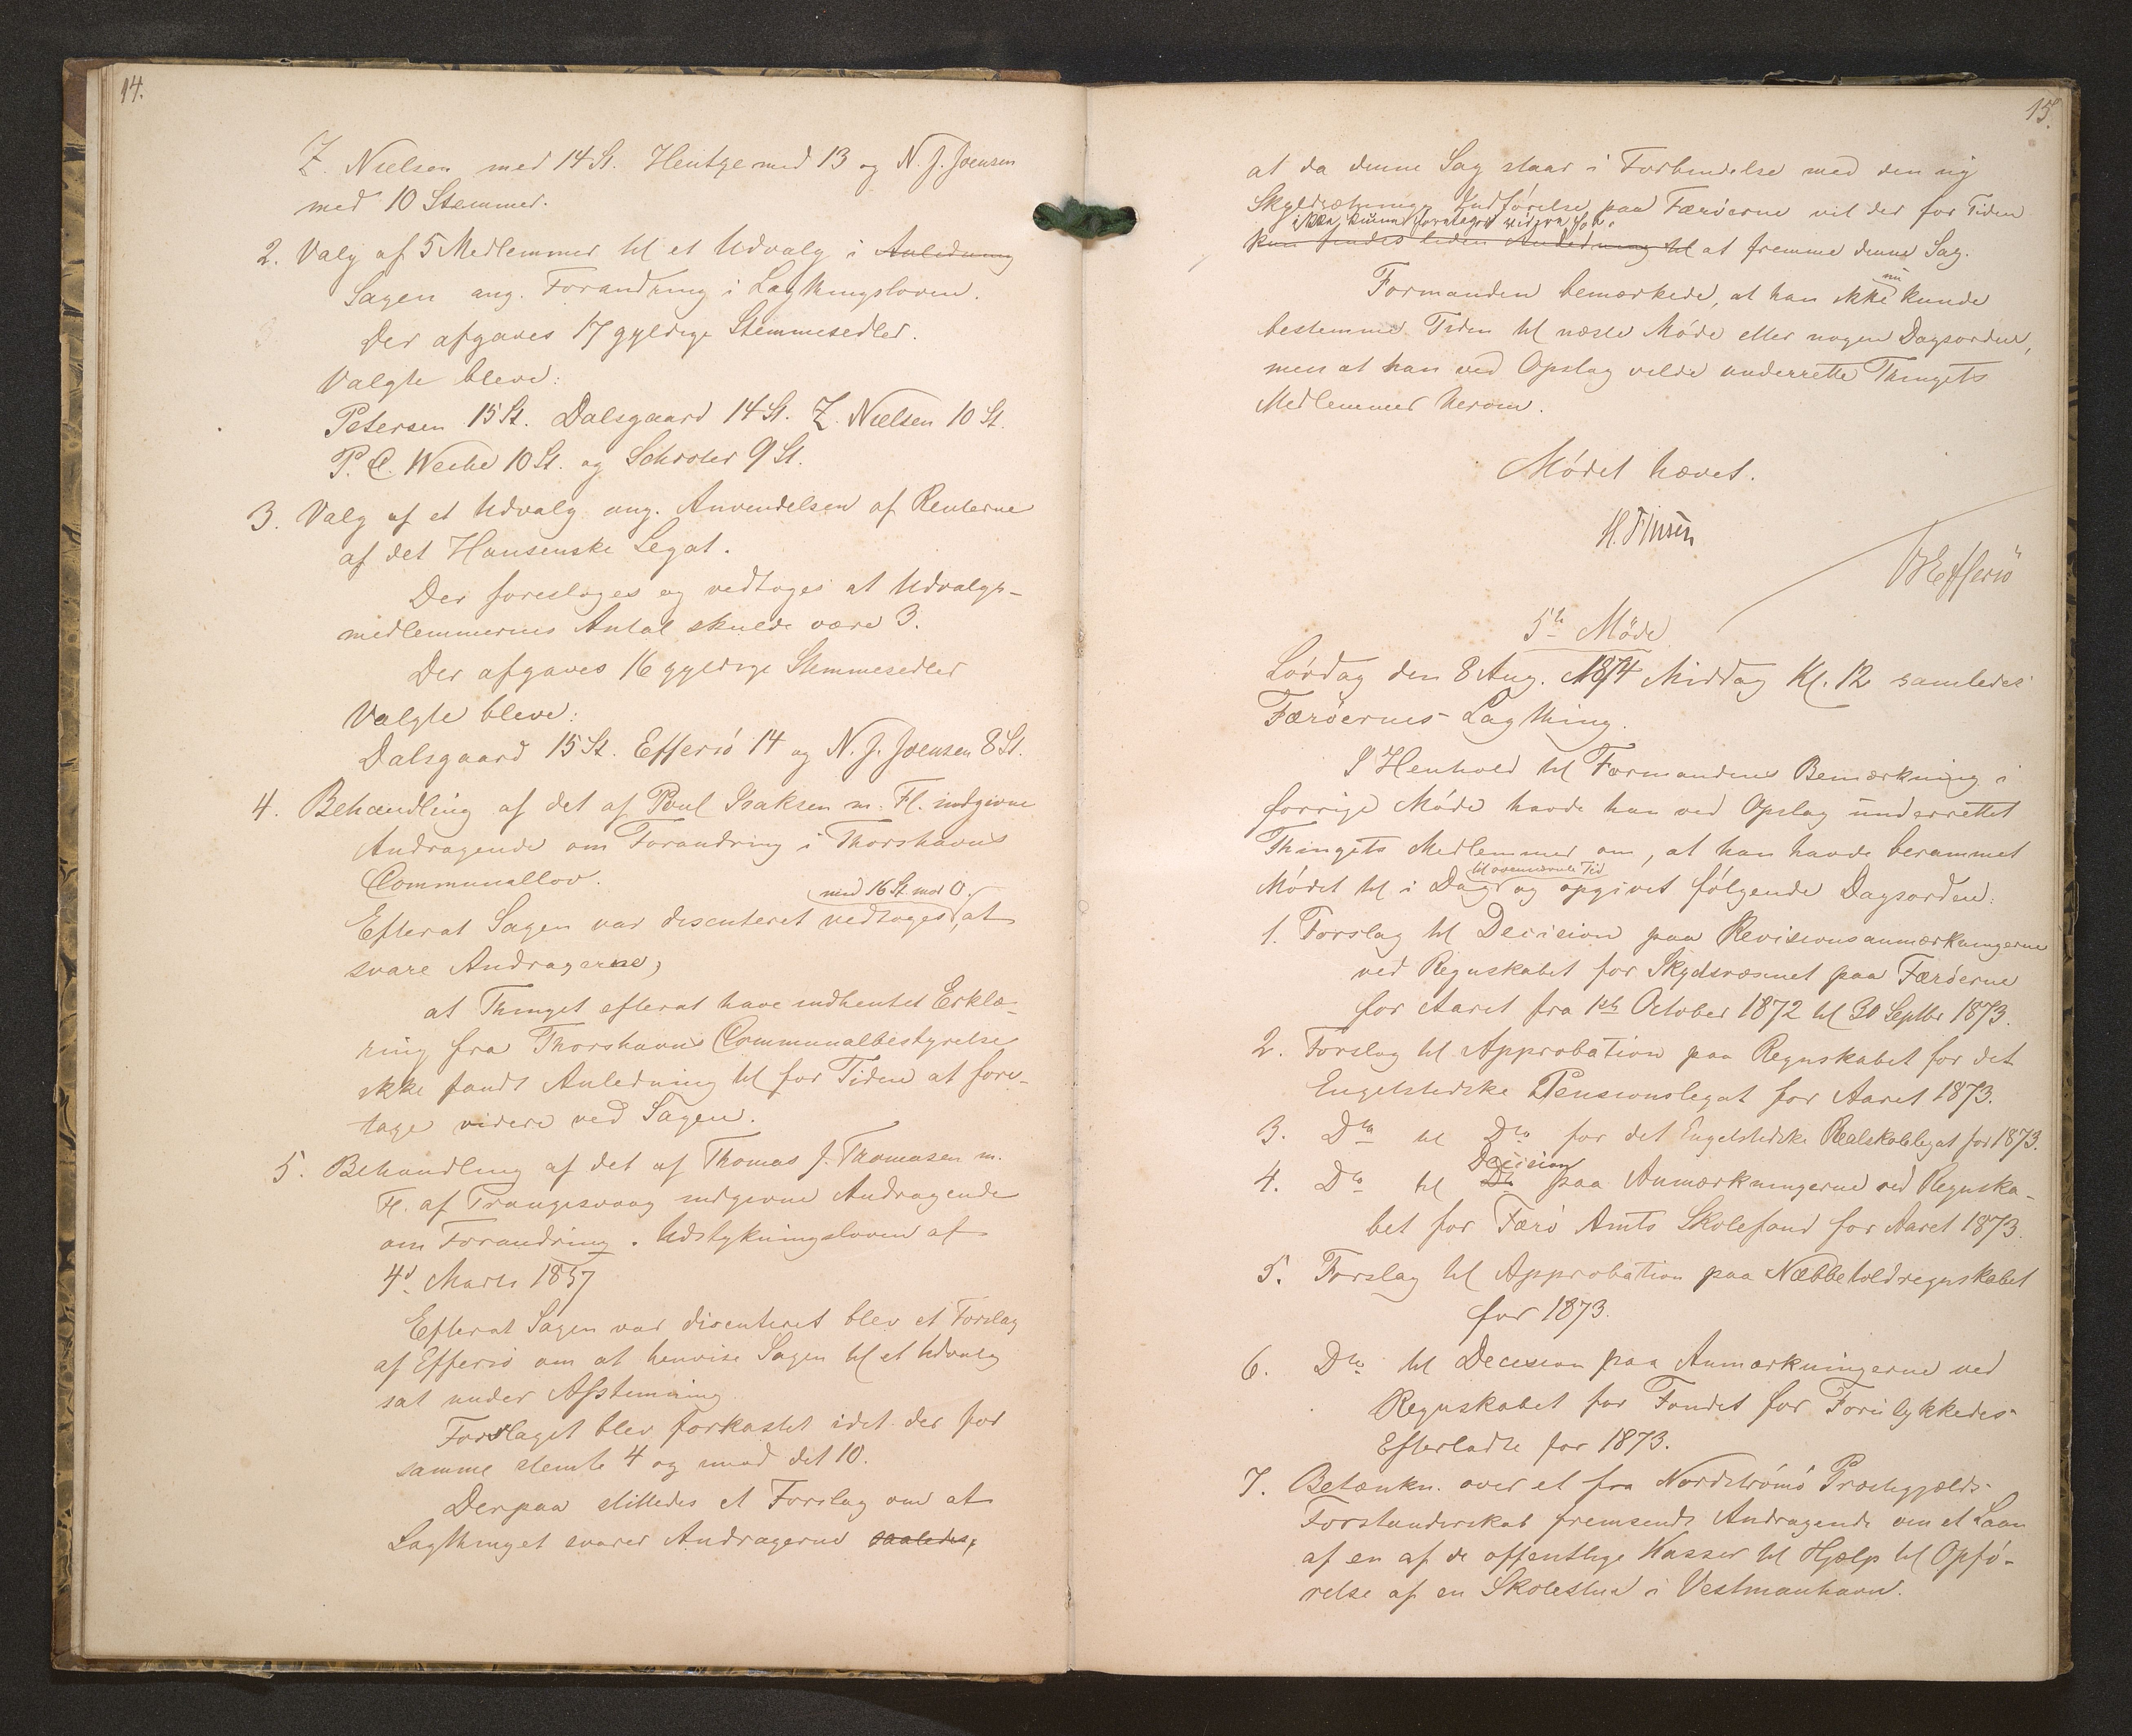 14.
Z. Nielsen med 14 St. Hentze med 13 og N. J. Joensen
med 10 Stemmer.
2. Valg af 5 Medlemmer til et Udvalg i Anledning
Sagen ang. Forandring i Lagthingsloven.
Der afgaves 17 gyldige Stemmesedler.
Valgte bleve:
Petersen 15 St. Dalsgaard 14 St. Z. Nielsen 10 St.
P. C. Weihe 10 St. og Schrøter 9 St.
3. Valg af et Udvalg ang. Anvendelsen af Renterne
af det Hansenske Legat.
Der foresloges og vedtoges at Udvalgs-
medlemmernes Antal skulde være 3.
Der afgaves 16 gyldige Stemmesedler
Valgte bleve:
Dalsgaard 15 St. Effersö 14 og N. J. Joensen 8 St.
4. Behandling af det af Poul Isaksen m. Fl. indgivne
Andragende om Forandring i Thorshavns
Communallov.
med 16 St. mod 0.
Efterat Sagen var discuteret vedtoges, at
svare Andragerne,
at Thinget efterat have indhentet Erklæ-
ring fra Thorshavns Communalbestyrelse
ikke fandt Anledning til for Tiden at fore-
tage videre ved Sagen.
5. Behandling af det af Thomas J. Thomasen m.
Fl. af Trangisvaag indgivne Andragende
om Forandring i Udstykningsloven af
4d. Marts 1857
Efterat Sagen var discuteret blev et Forslag
af Effersö om at henvise Sagen til et Udvalg
sat under Afstemning
Forslaget blev forkastet idet der for
samme stemte 4 og imod det 10.
Derpaa stilledes et Forslag om at
Lagthinget svarer Andragerne saaledes,
15.
at da denne Sag staar i Forbindelse med den ny
Skyldsætnings Indförelse paa Færöerne vil der for Tiden
ikke kunne foretages videre for
kun findes liden Anledning til at fremme denne Sag.
nu
Formanden bemærkede, at han ikke kunde
bestemme Tiden til næste Möde eller nogen Dagsorden,
men at han ved Opslag vilde underrette Thingets
Medlemmer herom.
Mödet hævet.
H. Finsen
Effersö
5te Möde
Lördag den 8 Aug. 1874 Middag Kl. 12 samledes
Færöernes Lagthing.
I Henhold til Formandens Bemærkning i
forrige Möde havde han ved Opslag underrettet
Thingets Medlemmer om, at han havde berammet
til ovennævnte Tid
Mödet til i Dag og opgivet fölgende Dagsorden:
1. Forslag til Decision paa Revisionsanmærkningerne
ved Regnskabet for Skydsvæsenet paa Færöerne
for Aaret fra 1ste October 1872 til 30 Septbr 1873.
2. Forslag til Approbation paa Regnskabet for det
Engelstedske Pensionslegat for Aaret 1873.
3. Dto til Dto for det Engelstedske Realskolelegat for 1873.
Decision
4. Dto til Dto paa Anmærkningerne ved Regnska-
bet for Færö Amts Skolefond for Aaret 1873.
5. Forslag til Approbation paa Næbbetoldregnskabet
for 1873.
6. Dto til Decision paa Anmærkningerne ved
Regnskabet for Fondet for Forulykkedes
Efterladte for 1873.
7. Betænkn. over et fra Nordströmö Præstegjælds-
Forstanderskab fremsendt Andragende om et Laan
af en af de offentlige Kasser til Hjælp til Opfö-
relse af en Skolestue i Vestmanhavn.